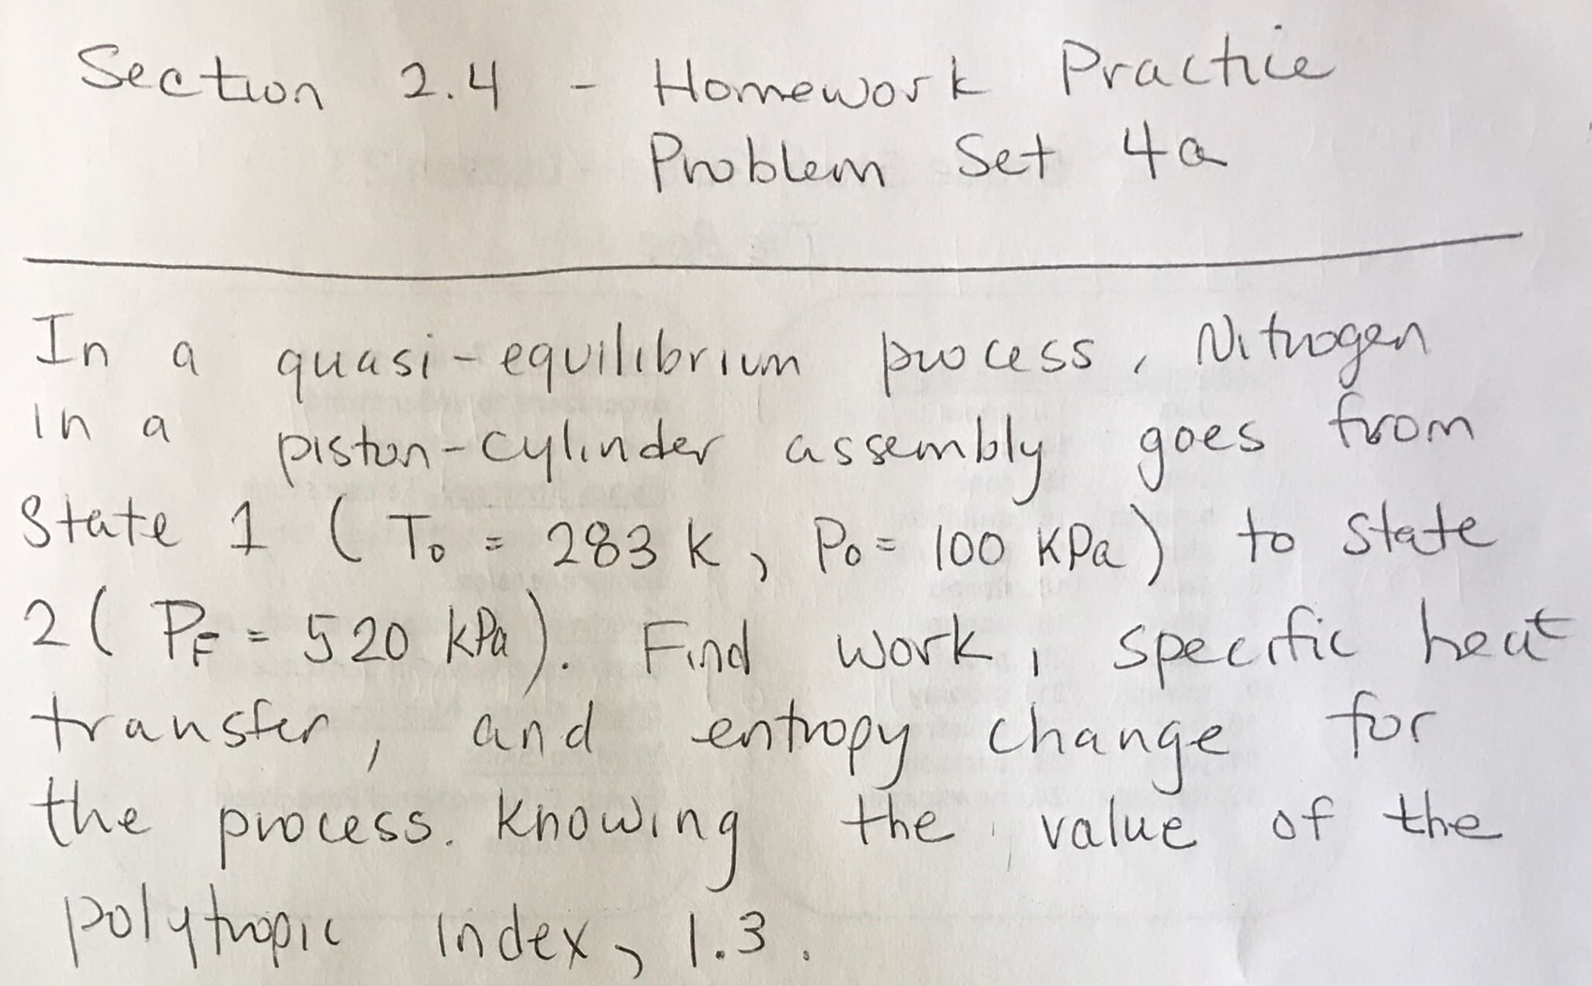 Section 2.4 - Homework Practice
Problem Set 4a
In a quasi-equilibrium process, Nitrogen
in a piston-cylinder assembly goes from
State 1 (T₀ = 283 K, P₀ = 100 KPa) to state
2 (P_F = 520 kPa). Find work, specific heat
transfer, and entropy change for
the process. Knowing the value of the
polytropic index, 1.3.